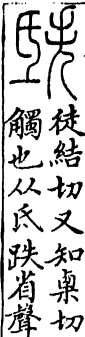 徒結切又知㮚切
觸也从氏跌省聲